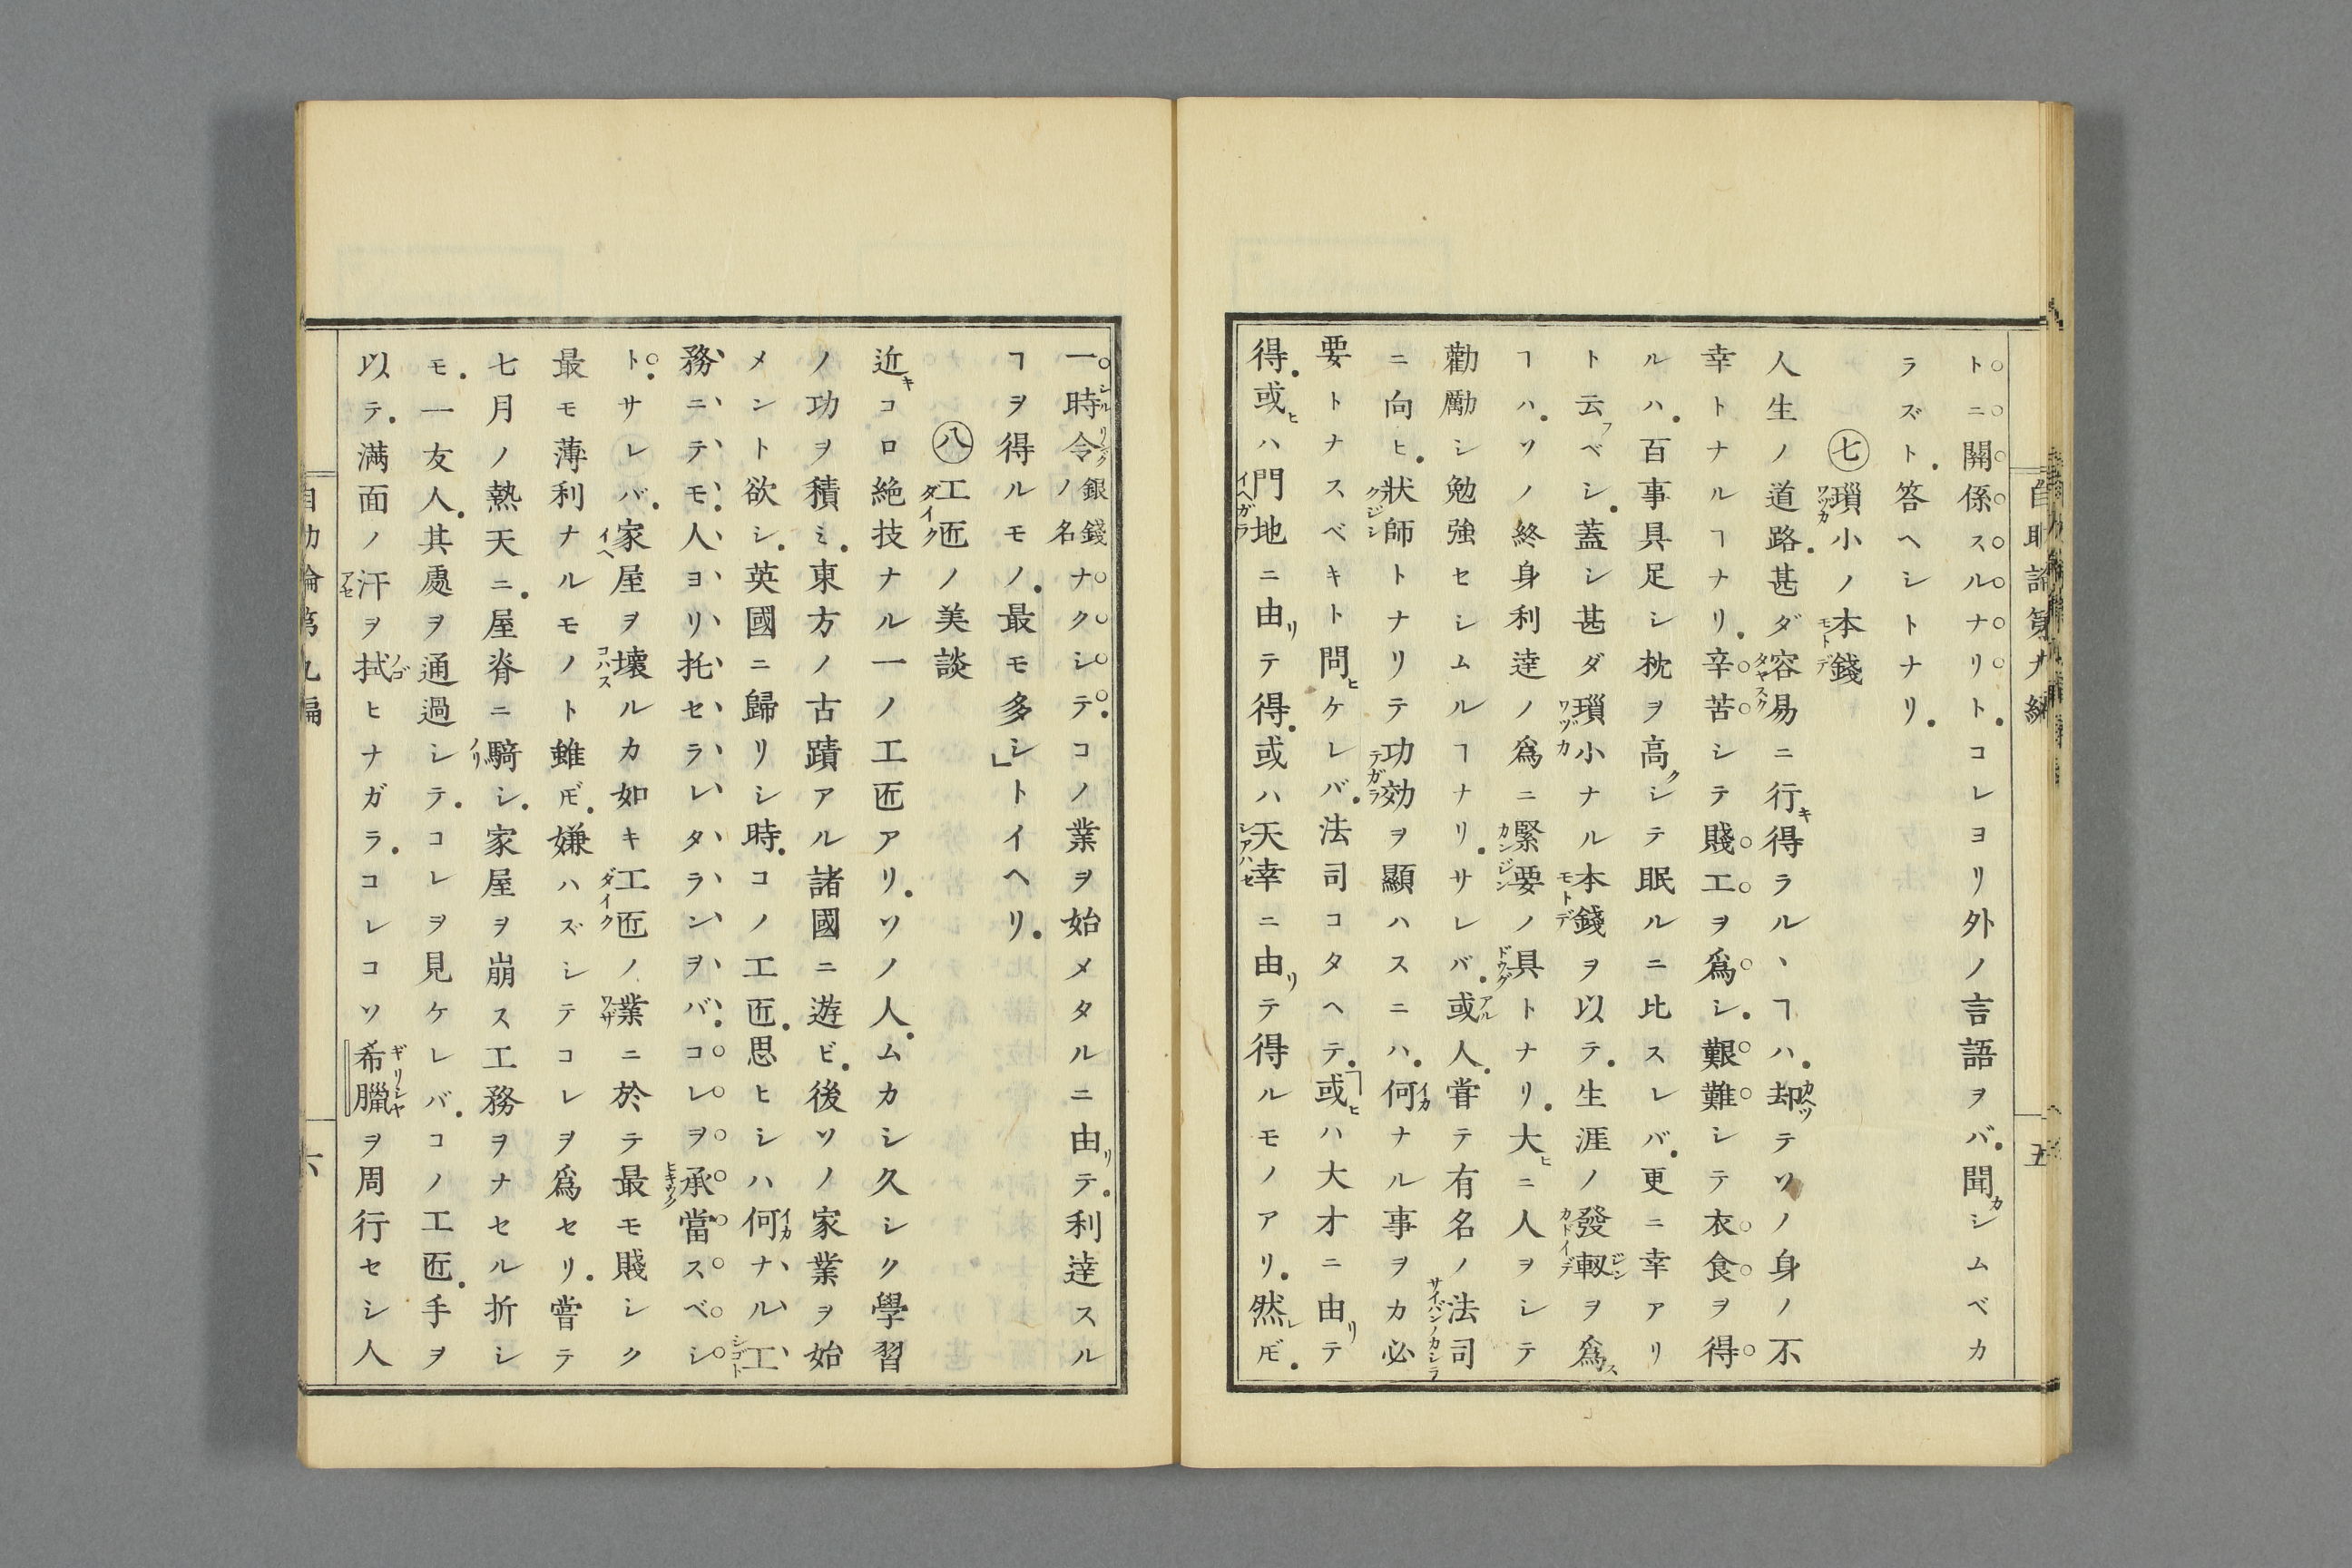 トニ關係スルナリト．コレヨリ外ノ言語ヲバ．聞カシムベカ
ラズト．答ヘシトナリ．
㊆瑣小ノ本錢
人生ノ道路．甚ダ容易ニ行キ得ラル、ヿハ．却テソノ身ノ不
幸トナルヿナリ．辛苦シテ賤工ヲ爲シ．艱難シテ衣食ヲ得
ルハ．百事具足シ枕ヲ高クシテ眠ルニ比スレバ．更ニ幸アリ
ト云フベシ．蓋シ甚ダ瑣小ナル本錢ヲ以テ．生涯ノ發軔ヲ爲ス
ヿハ．ソノ終身利達ノ爲ニ緊要ノ具トナリ．大ヒニ人ヲシテ
勸勵シ勉強セシムルヿナリ．サレバ．或人．嘗テ有名ノ法司
ニ向ヒ．狀師トナリテ功効ヲ顯ハスニハ．何ナル事ヲカ必
要トナスベキト問ヒケレバ．法司コタヘテ．「或ヒハ大才ニ由リテ
得．或ヒハ門地ニ由リテ得．或ハ天幸ニ由リテ得ルモノアリ．然レ𪜈．
自助論第九編
五
一時令銀錢ノ名ナクシテ．コノ業ヲ始メタルニ由リテ．利達スル
ヿヲ得ルモノ．最モ多シ」トイヘリ．
㊇工匠ノ美談
近キコロ絶技ナル一ノ工匠アリ．ソノ人．ムカシ久シク學習
ノ功ヲ積ミ．東方ノ古蹟アル諸國ニ遊ビ．後ソノ家業ヲ始
メント欲シ．英國ニ歸リシ時．コノ工匠．思ヒシハ何ナル工
務ニテモ人ヨリ托セラレタランヲバ．コレヲ承當スベシ
ト．サレバ．家屋ヲ壞ルカ如キ工匠ノ業ニ於テ最モ賤シク
最モ薄利ナルモノト雖𪜈．嫌ハズシテコレヲ爲セリ．嘗テ
七月ノ熱天ニ．屋脊ニ騎シ．家屋ヲ崩ス工務ヲナセル折シ
モ．一友人．其處ヲ通過シテ．コレヲ見ケレバ．コノ工匠．手ヲ
以テ．満面ノ汗ヲ拭ヒナガラ．コレコソ希臘ヲ周行セシ人
自助論第九編
六